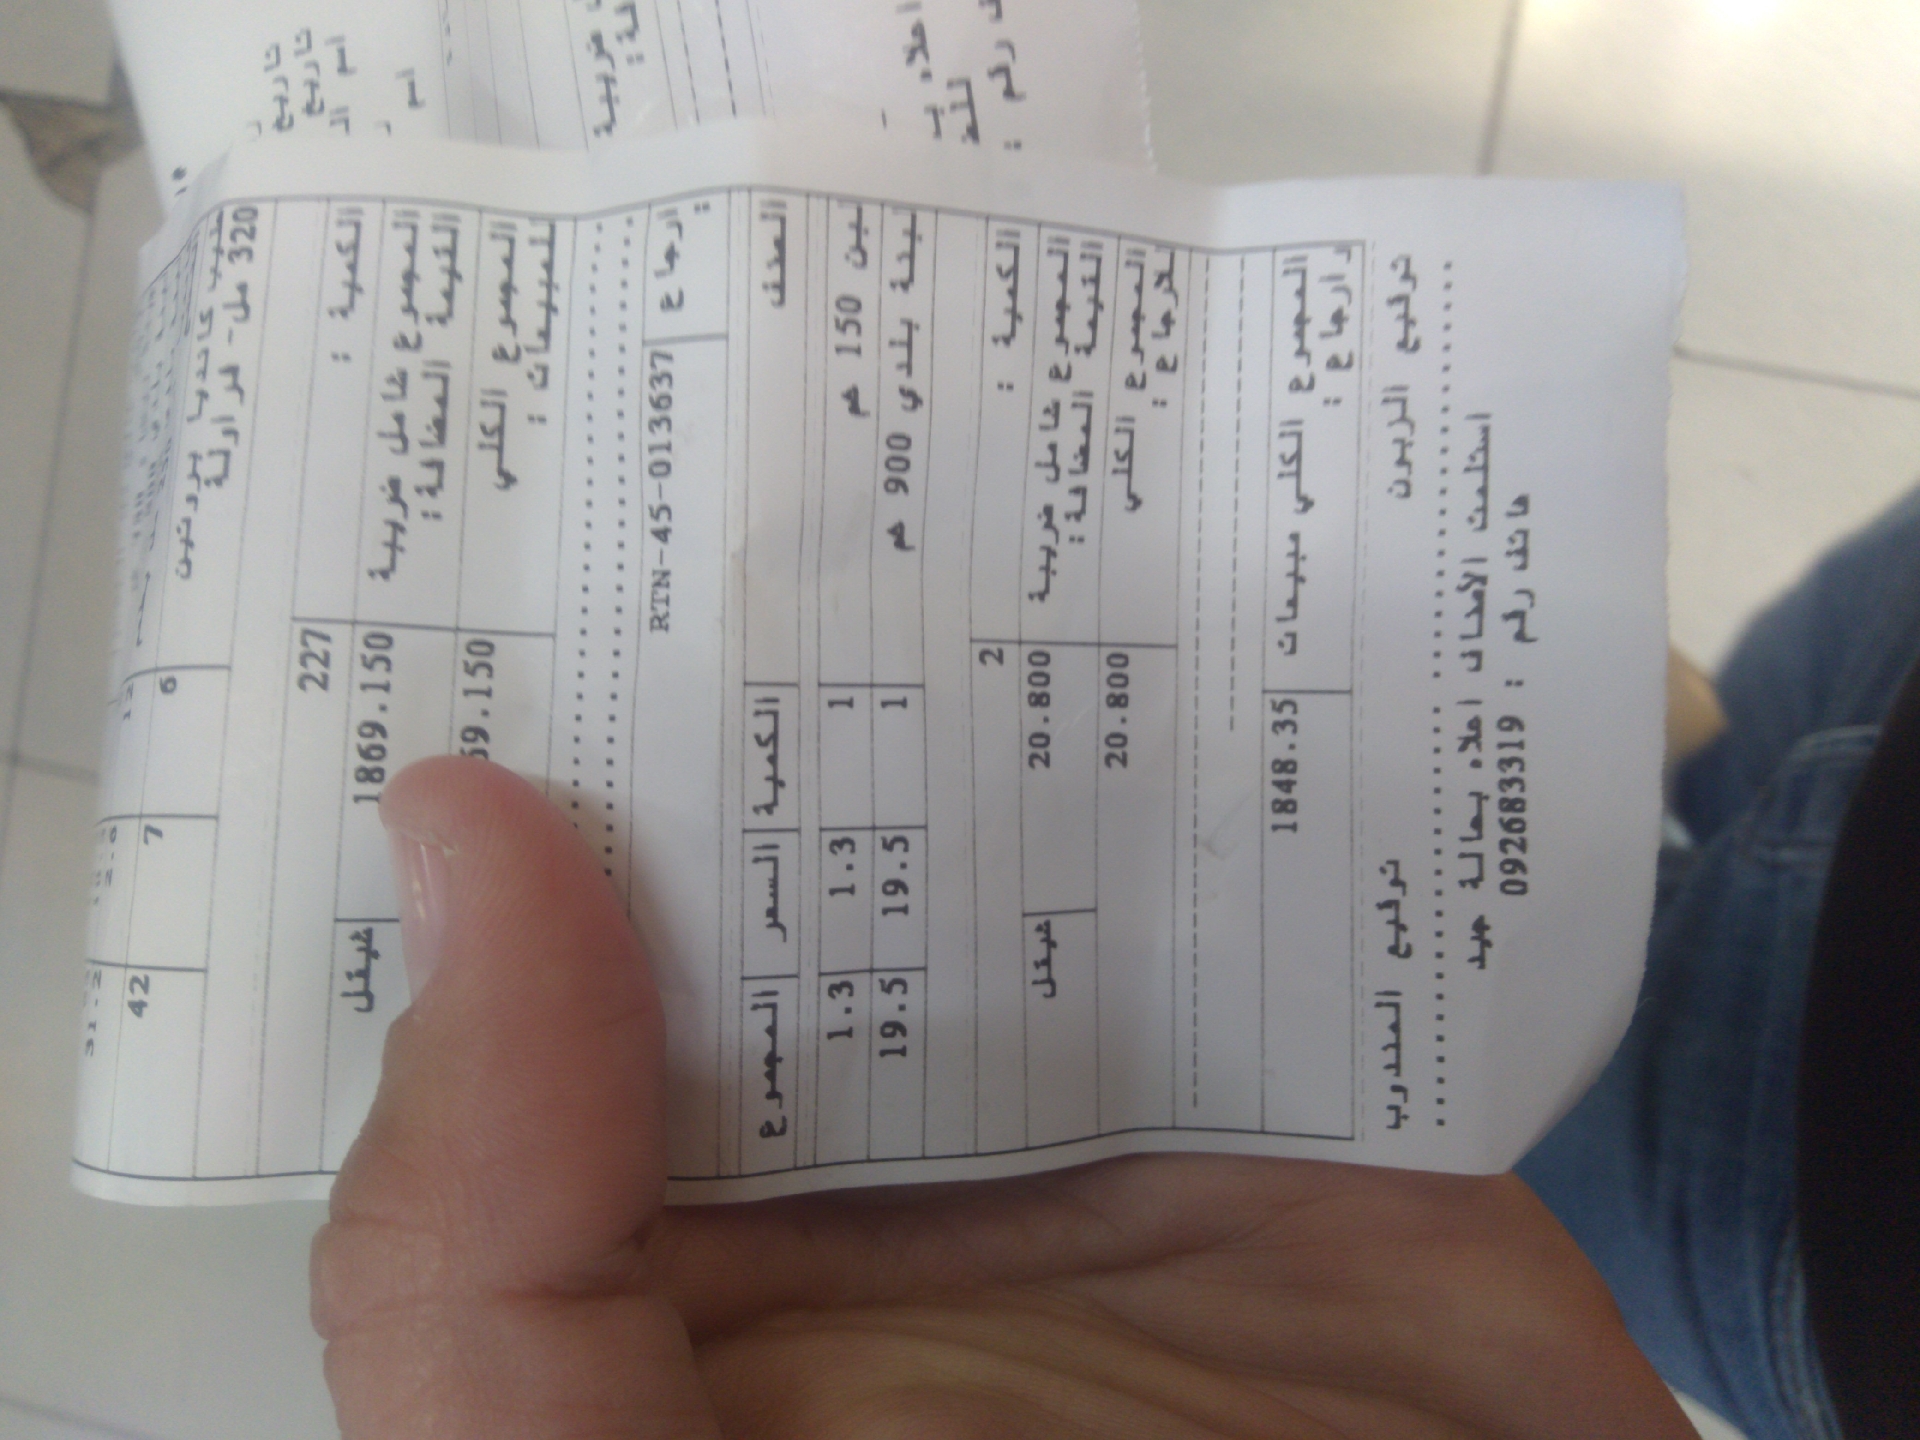 حليب كانديا بروتين 6 7 42
320 مل- فراولة
الكمية : 227
المجموع شامل ضريبة 1869.150 شيقل
القيمة المضافة :
المجموع الكلي 69.150
للمبيعات :
ارجاع : RTN-45-013637
الصنف الكمية السعر المجموع
لبن 150 غم 1 1.3 1.3
لبنة بلدي 900 غم 1 19.5 19.5
الكمية : 2
المجموع شامل ضريبة 20.800 شيقل
القيمة المضافة :
المجموع الكلي 20.800
للارجاع :
المجموع الكلي مبيعات 1848.35
و ارجاع :
توقيع الزبون توقيع المندوب
استلمت الأصناف اعلاه بحالة جيد
هاتف رقم : 092683319